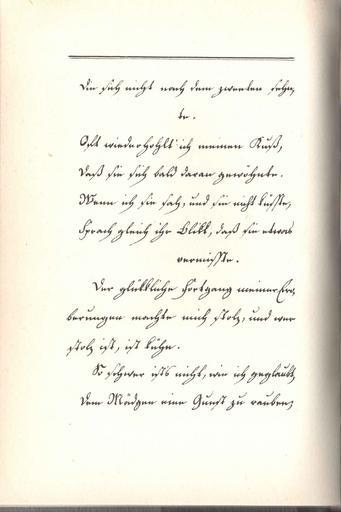 Die sich nicht nach dem zweeten sehn,
te.
Oft wiederhohlt' ich meinen Kuß,
Daß sie sich bald daran gewöhnte.
Wenn ich sie sah, und sie nicht küsste,
Sprach gleich ihr Blikk, daß sie etwas
vermisste.
Der glükkliche Fortgang meiner Ero,
berungen machte mich stolz, und wer
stolz ist, ist kühn.
So schwer ists nicht, wie ich geglaubt,
Dem Mädgen eine Gunst zu rauben;